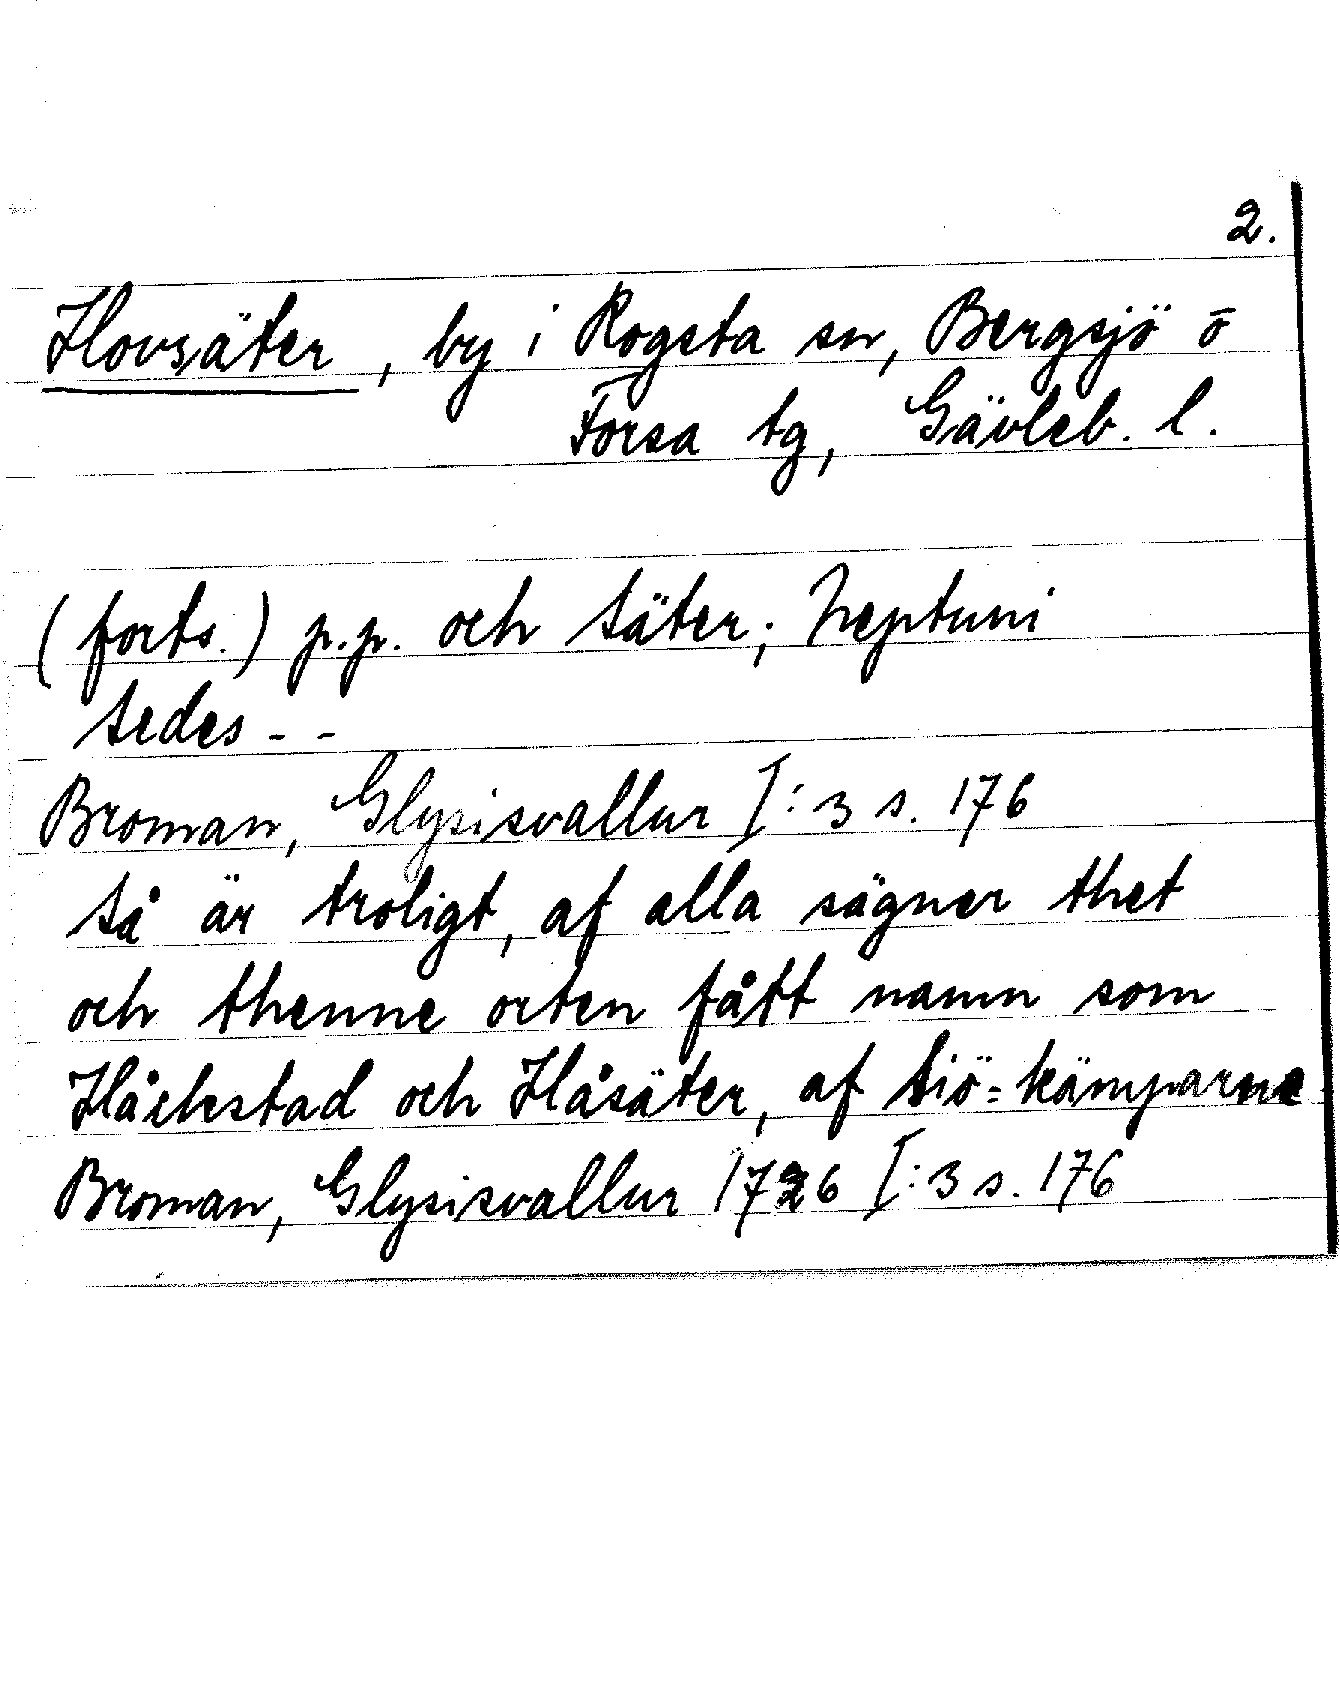 2.
Hovsäter, by i Rogsta sn, Bergsjö o
Forsa tg, Gävleb. l.
(forts.) p.p. och säter; Neptuni
sedes - -
Broman, Glysisvallur I:3 s. 176
Så är troligt, af alla sägner thet
och thenne orten fått namn som
Håckstad och Håsäter, af Siö=kämparne
Broman, Glysisvallur 1726 I:3 s. 176